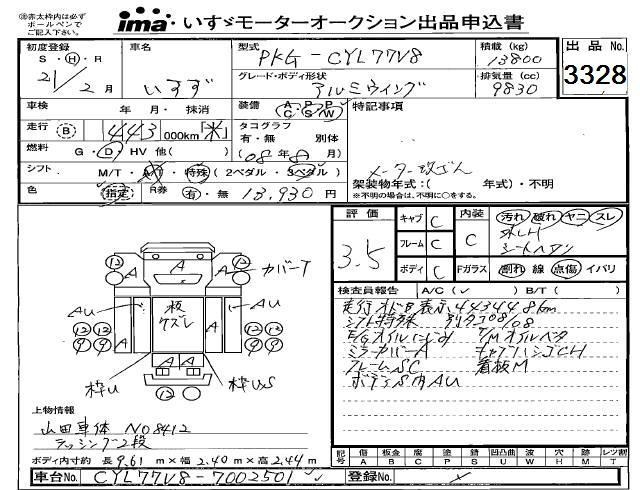 ㊟赤太枠内は必ず
ボールペンで
ご記入下さい。
ima いすゞモーターオークション出品申込書
初度登録 車名 型式 積載 (kg) 出品No.
S・H・R 21/2月 いすず PKG-CYL77V8 13800 3328
グレード・ボディ形状 排気量 (cc)
アルミウイング 9830
車検 年 月・抹消 装備 A/C P/S P/W 特記事項
走行 B 443 000km 米 タコグラフ
有・無 別体
燃料 G・D・HV 他( ) (08年8月)
メーター改ざん
シフト M/T・A/T・特殊(2ペダル・3ペダル) 架装物年式:( 年式)・不明
※不明の場合は、不明に○をする。
色 指定 R券 有・無 13,930円
評価 3.5 キャブ C 内装 C 汚れ 破れ ヤニ スレ
フレーム C
ボディ C Fガラス 割れ 線 点傷 イバリ
検査員報告 A/C(✓) B/T( )
走行オドB表示 443448km
シフト特殊 別タコ08/08
E/Gオイルにじみ T/Mオイルベタ
ミラーカバーA キャブハシゴCH
フレームSC 看板M
ボデーS内AU
12 A A A 12 カバーT
AU 板ケズレ AU
12 12 A A 12 12
9 9 9 9
A A
枠U 枠US
12
上物情報
山田車体 NO8412
ラッシング2段
ボディ内寸約 長 9.61 m × 幅 2.40 m × 高 2.44 m
記号 傷 板金 腐 塗 錆 凹凸曲 波 穴 跡 要交換
A B C P S U W H M T
車台No. CYL77V8-7002501 登録No.